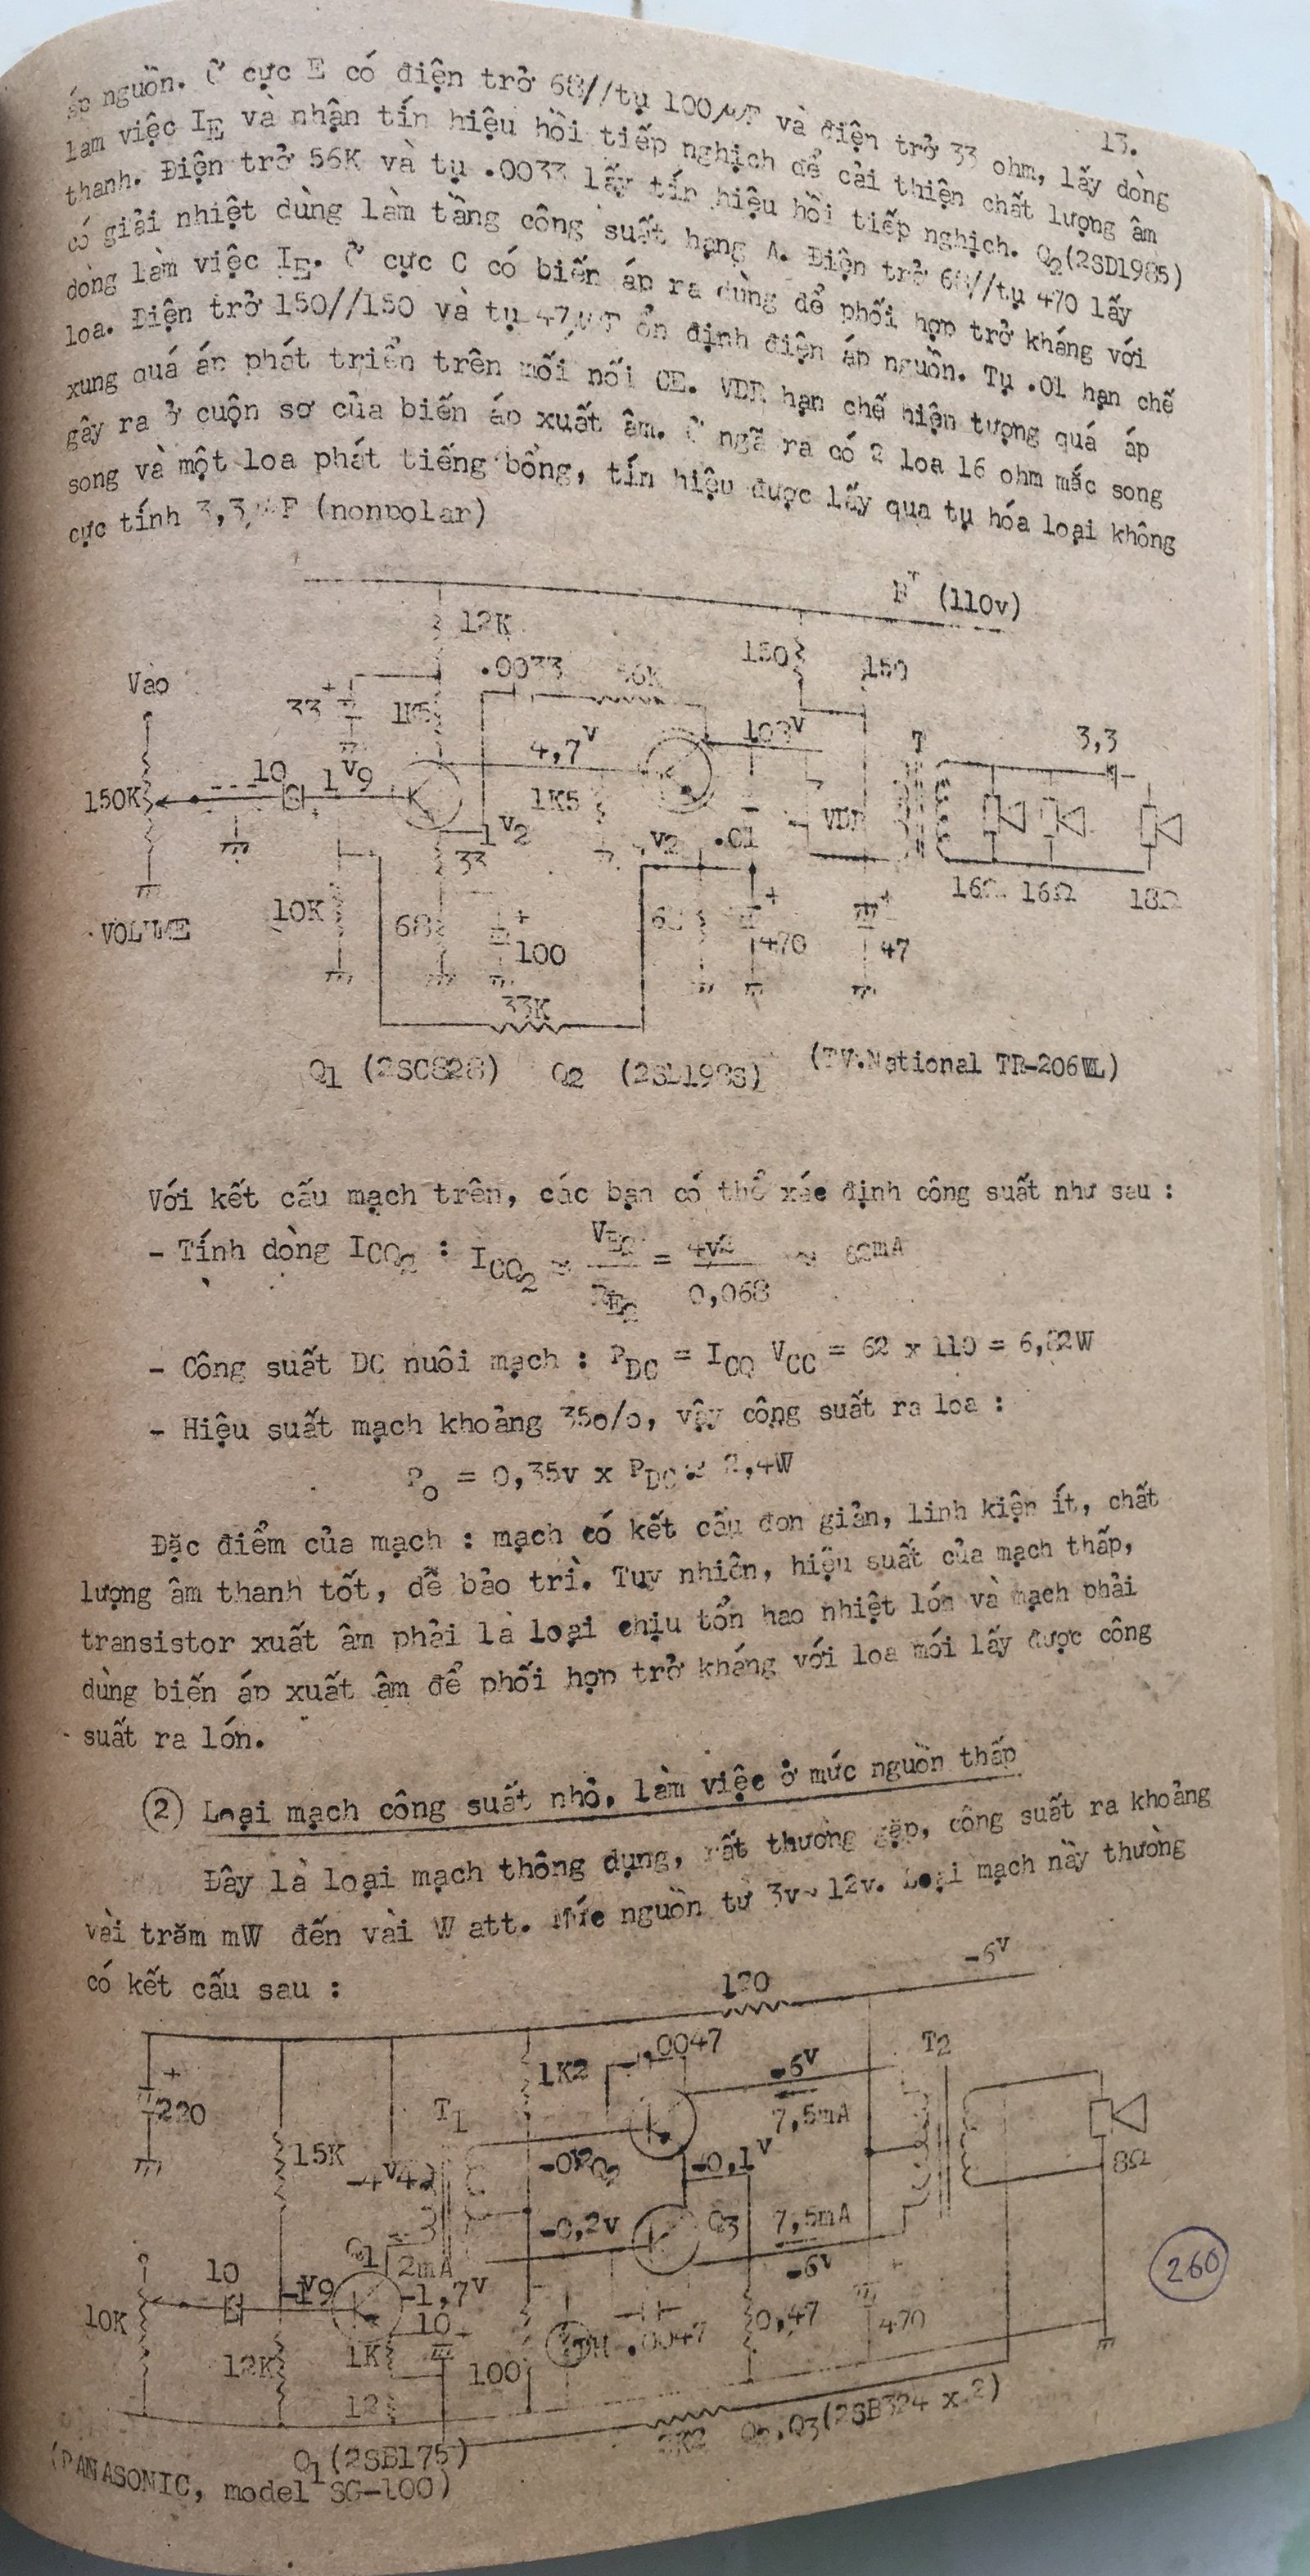 13.
áp nguồn. Ở cực E có điện trở 68//tụ 100μF và điện trở 33 ohm, lấy dòng
làm việc IE và nhận tín hiệu hồi tiếp nghịch để cải thiện chất lượng âm
thanh. Điện trở 56K và tụ .0033 lấy tín hiệu hồi tiếp nghịch. Q2(2SD1985)
có giải nhiệt dùng làm tầng công suất hạng A. Điện trở 68//tụ 470 lấy
dòng làm việc IE. Ở cực C có biến áp ra dùng để phối hợp trở kháng với
loa. Điện trở 150//150 và tụ 47μF ổn định điện áp nguồn. Tụ .01 hạn chế
xung quá áp phát triển trên mối nối CE. VDR hạn chế hiện tượng quá áp
gây ra ở cuộn sơ của biến áp xuất âm. Ở ngã ra có 2 loa 16 ohm mắc song
song và một loa phát tiếng bổng, tín hiệu được lấy qua tụ hóa loại không
cực tính 3,3μF (nonpolar)
B+ (110v)
12K
.0033
56K
150
150
Vào
33
+
1K5
4,7V
109V
T
3,3
150K
10
1V9
1K5
VDR
1V2
33
4V2
.01
16Ω
16Ω
18Ω
VOLUME
10K
68
+
100
68
+
470
+
47
33K
Q1 (2SC828)
Q2 (2SD198S)
(TV.National TR-206WL)
Với kết cấu mạch trên, các bạn có thể xác định công suất như sau :
- Tính dòng ICQ2 : ICQ2 ≈ VE2/RE2 = 4v2/0,068 ≈ 62mA
- Công suất DC nuôi mạch : PDC = ICQ VCC = 62 x 110 = 6,82W
- Hiệu suất mạch khoảng 35o/o, vậy công suất ra loa :
PO = 0,35v x PDC ≈ 2,4W
Đặc điểm của mạch : mạch có kết cấu đơn giản, linh kiện ít, chất
lượng âm thanh tốt, dễ bảo trì. Tuy nhiên, hiệu suất của mạch thấp,
transistor xuất âm phải là loại chịu tổn hao nhiệt lớn và mạch phải
dùng biến áp xuất âm để phối hợp trở kháng với loa mới lấy được công
suất ra lớn.
2 Loại mạch công suất nhỏ, làm việc ở mức nguồn thấp
Đây là loại mạch thông dụng, rất thường gặp, công suất ra khoảng
vài trăm mW đến vài W att. Mức nguồn từ 3v~12v. Loại mạch này thường
có kết cấu sau :
120
-6V
1K2
.0047
-6V
T2
+
220
T1
7,5mA
15K
-4V4
Q2
-0,1V
8Ω
-0,2v
Q3
7,5mA
-6V
Q1
2mA
10
-1V9
-1,7V
10K
10
+
12K
1K
100
.0047
0,47
+
470
12
Q1(2SB175)
Q2,Q3(2SB324 x 2)
(PANASONIC, model SG-100)
260